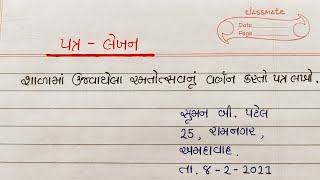 classmate
Date
Page
પત્ર - લેખન
શાળામાં ઉજવાયેલા રમતોત્સવનું વર્ણન કરતો પત્ર લખો.
સુમન બી. પટેલ
25, રામનગર,
અમદાવાદ.
તા. ૪-2-2021